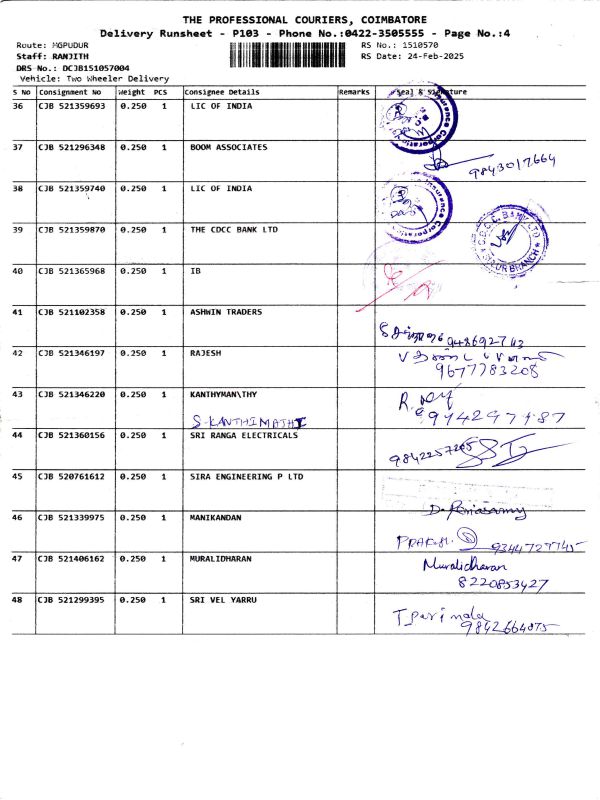 THE PROFESSIONAL COURIERS, COIMBATORE
Delivery Runsheet - P103 - Phone No.:0422-3505555 - Page No.:4
Route: MGPUDUR RS No.: 1510570
Staff: RANJITH RS Date: 24-Feb-2025
DRS No.: DCJB151057004
Vehicle: Two Wheeler Delivery
S No Consignment No Weight PCS Consignee Details Remarks Seal & Signature
36 CJB 521359693 0.250 1 LIC OF INDIA
37 CJB 521296348 0.250 1 BOOM ASSOCIATES
9843017664
38 CJB 521359740 0.250 1 LIC OF INDIA
39 CJB 521359870 0.250 1 THE CDCC BANK LTD
40 CJB 521365968 0.250 1 IB
41 CJB 521102358 0.250 1 ASHWIN TRADERS
42 CJB 521346197 0.250 1 RAJESH
9677783208
43 CJB 521346220 0.250 1 KANTHYMAN\THY
S.KANTHIMATHI
44 CJB 521360156 0.250 1 SRI RANGA ELECTRICALS
9842257205
45 CJB 520761612 0.250 1 SIRA ENGINEERING P LTD
46 CJB 521339975 0.250 1 MANIKANDAN
47 CJB 521406162 0.250 1 MURALIDHARAN
Muralidharan
8220853427
48 CJB 521299395 0.250 1 SRI VEL YARRU